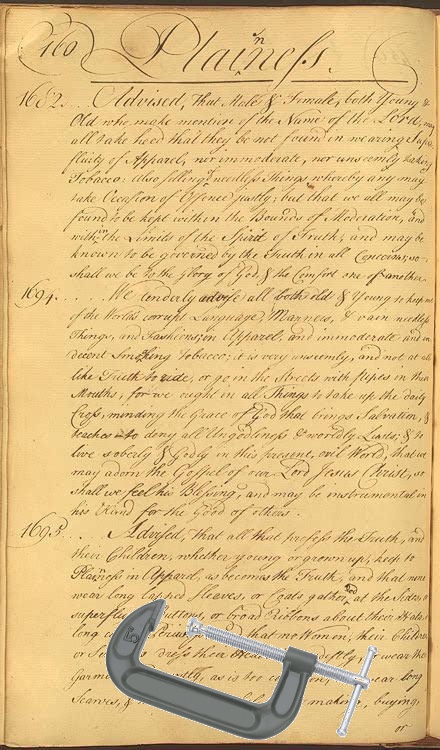 160
Plainness.
1682... Advised, That Male & Female, both Young &
Old who make mention of the Name of the Lord, may
all take heed that they be not found in wearing Supe
fluity of Apparel, nor immoderate, nor unseemly taking
Tobacco: Also selling needless Things whereby any may
take Occasion of Offence justly; but that we all may be
found to be kept within the Bounds of Moderation, and
within the Limits of the Spirit of Truth; and may be
known to be governed by the Truth in all Concerns, so
shall we be to the Glory of God, & the Comfort one of another.
1694..... We tenderly advise all both old & Young to keep
of the World's corrupt Language, Manners, & vain needless
Things, and Fashions, in Apparel; and immoderate and in
decent Smoking Tobacco; it is very unseemly, and not at all
like Truth to ride, or go in the Streets with Pipes in their
Mouths, for we ought in all Things to take up the daily
Cross, minding the Grace of God that brings Salvation, &
teaches to deny all Ungodliness & worldly Lusts; & to
live soberly & Godly in this present, evil World, that we
may adorn the Gospel of our Lord Jesus Christ, so
shall we feel his Blessing, and may be instrumental in
his Hand for the Good of others.
1695... Advised, That all that profess the Truth, and
their Children, whether young or grown up, keep to
Plainness in Apparel, as becomes the Truth; and that none
wear long lapped Sleaves, or Coats at the Sides, or
superflu Buttons, or broad Ribbons about their Hats,
long and that no Women, their Children
or dress their wear
Garm as is too wear long
Scarves, & making, buying,
or